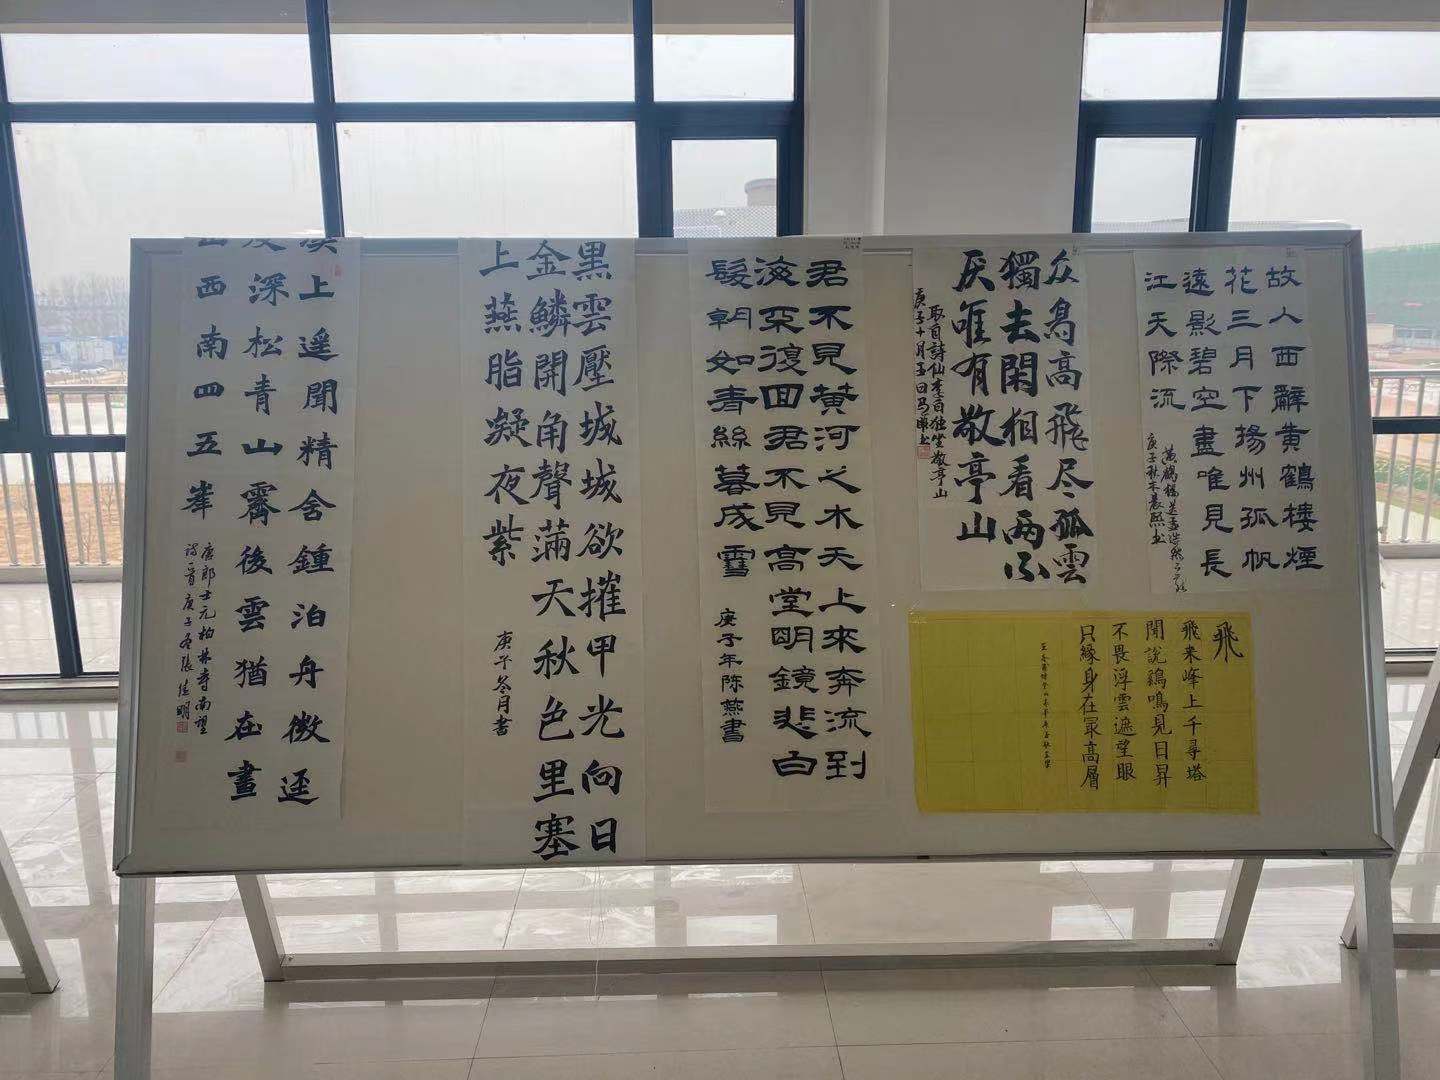 故人西辭黄鶴樓煙
花三月下揚州孤帆
遠影碧空盡唯見長
江天際流
黄鶴樓送孟浩然之
庚子秋木晨熙书
众鳥高飛尽孤雲
獨去閑相看两不
厌唯有敬亭山
取自詩仙李白独坐敬亭山
庚子十月子曰
飛
飛来峰上千尋塔
聞説鷄鳴見日昇
不畏浮雲遮望眼
只緣身在冣高層
君不見黄河之水天上來奔流到
海不復回君不見高堂明鏡悲白
髮朝如青絲暮成雪
庚子年陈燕書
黑雲壓城城欲摧甲光向日
金鱗開角聲滿天秋色里塞
上燕脂凝夜紫
庚子冬月書
溪上遥聞精舍鍾泊舟微逕
度深松青山霽後雲猶在畫
出西南四五峯
唐郎士元柏林寺南望
詩一首庚子冬張佳明